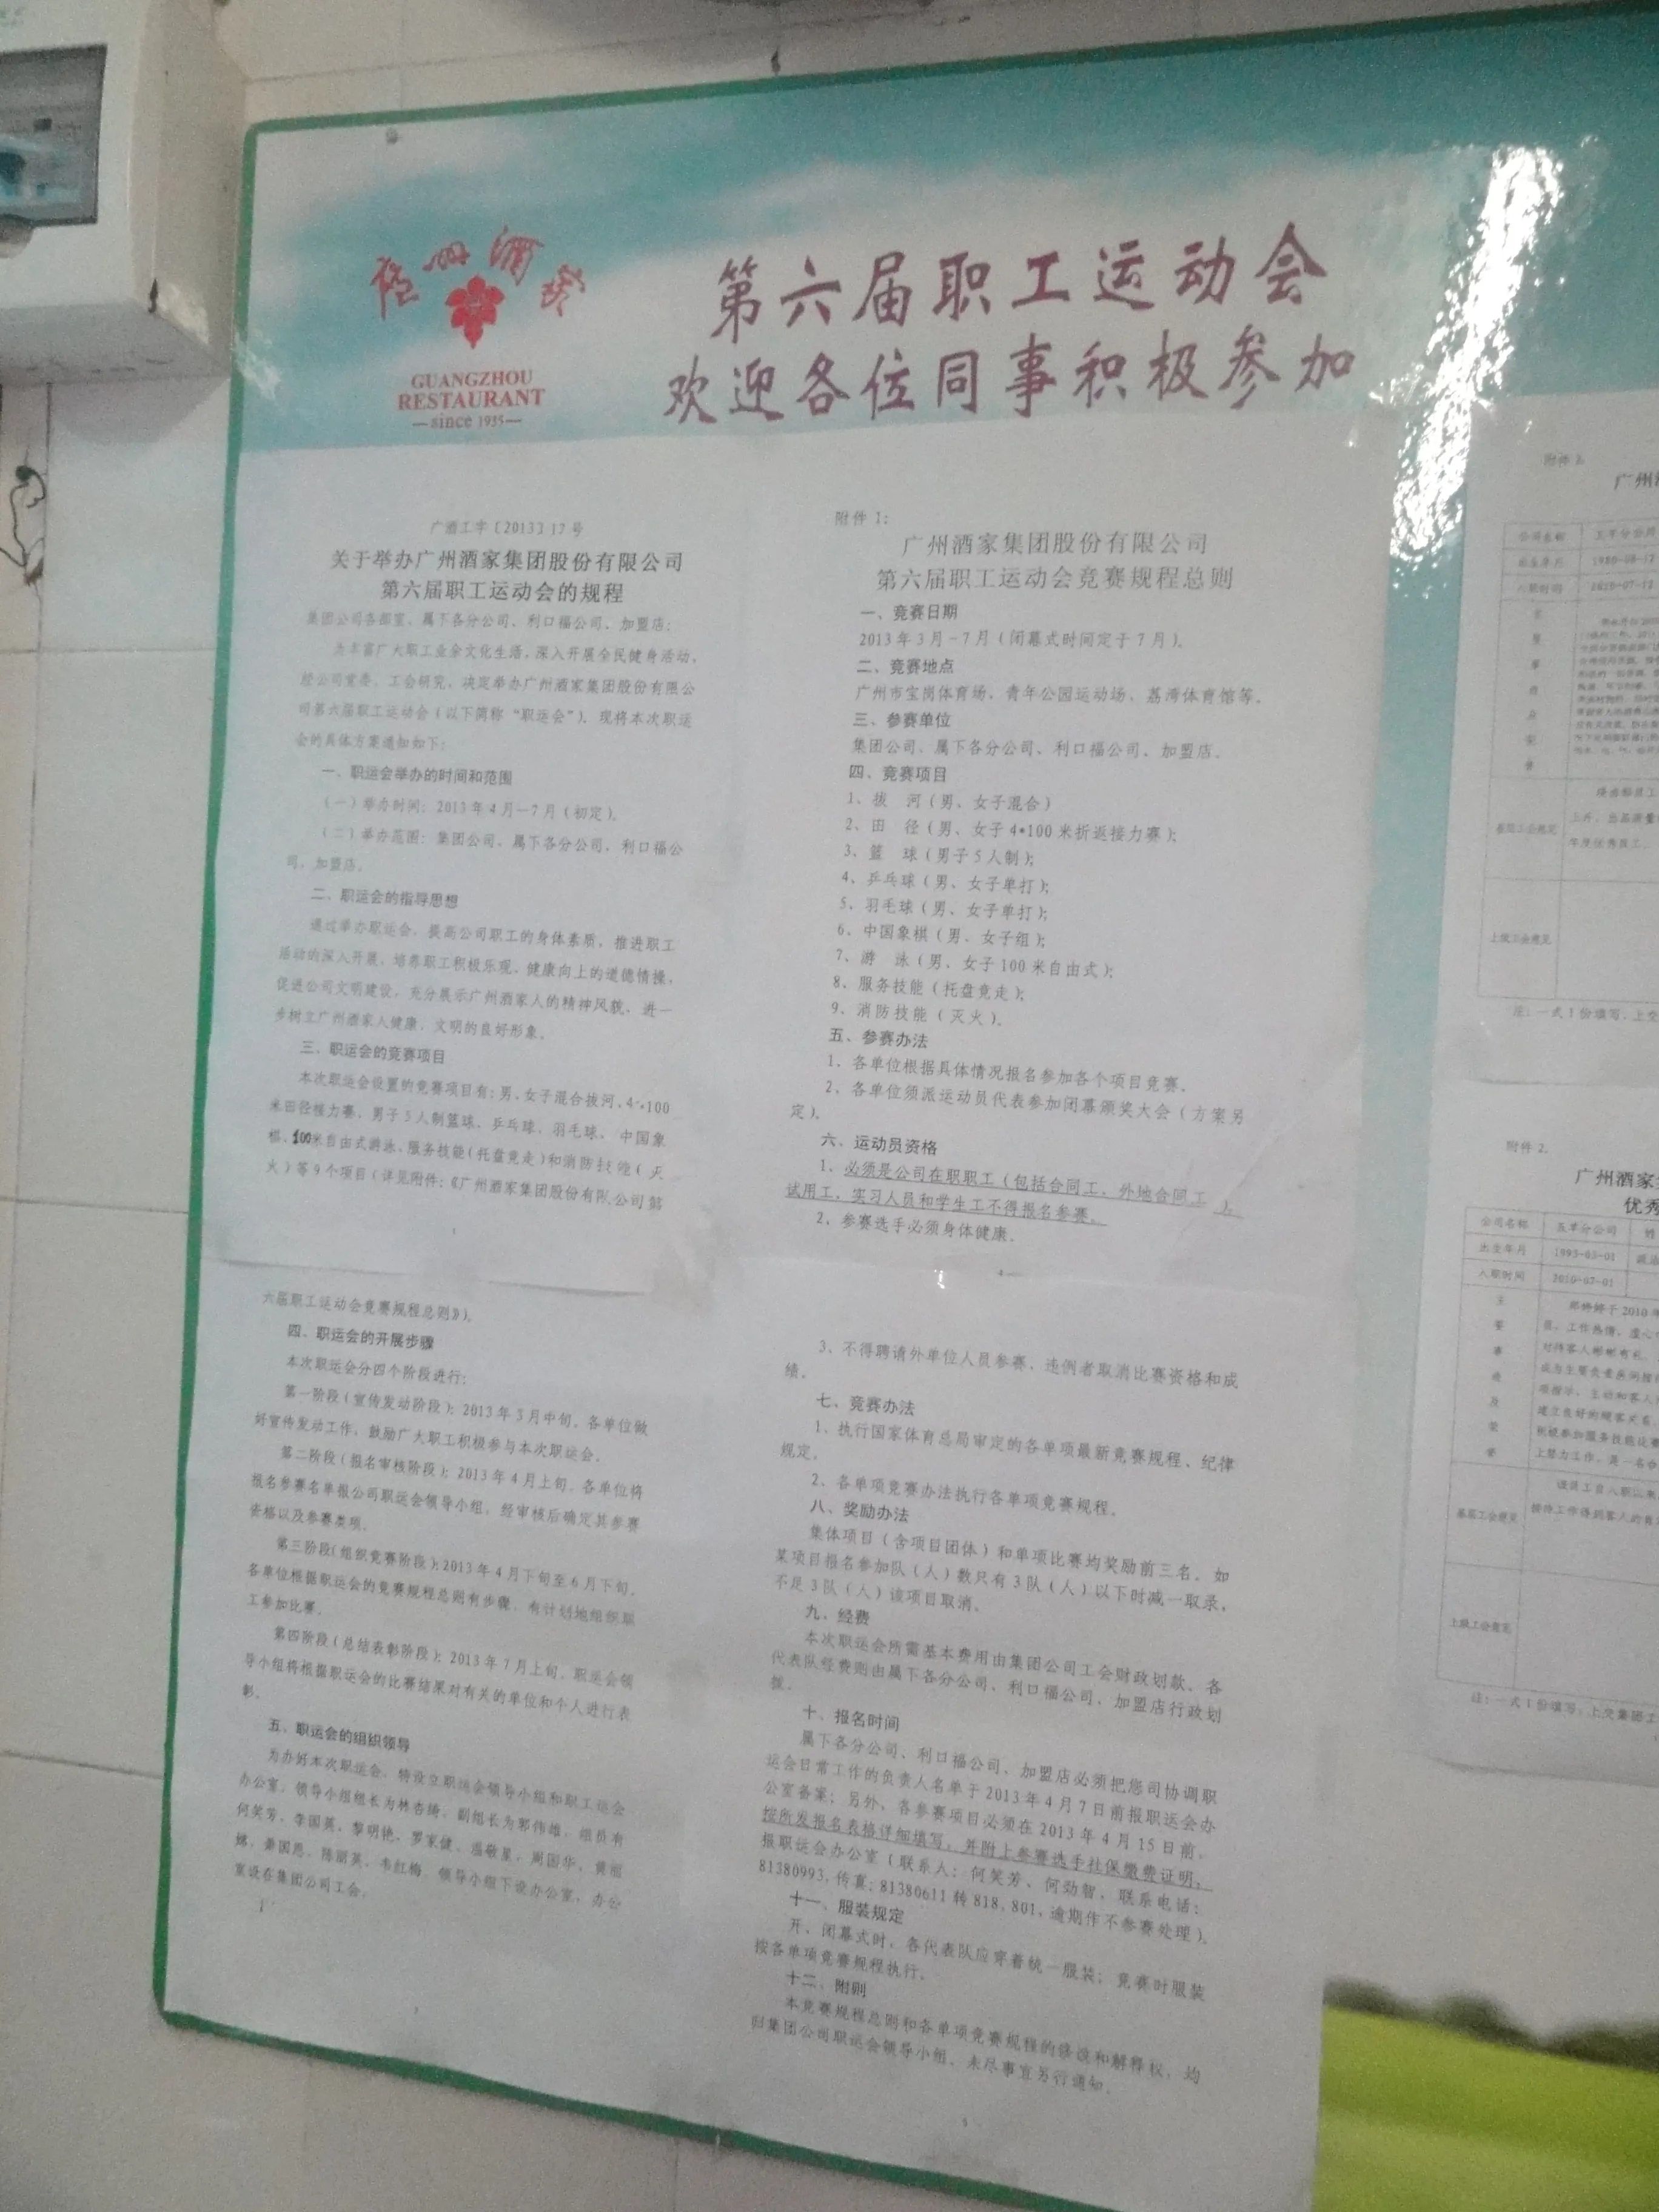 广州酒家
GUANGZHOU
RESTAURANT
since 1935
第六届职工运动会
欢迎各位同事积极参加
广酒工字〔2013〕17号
关于举办广州酒家集团股份有限公司
第六届职工运动会的规程
集团公司各部室、属下各分公司、利口福公司、加盟店：
为丰富广大职工业余文化生活，深入开展全民健身活动，
经公司党委、工会研究，决定举办广州酒家集团股份有限公
司第六届职工运动会（以下简称“职运会”）。现将本次职运
会的具体方案通知如下：
一、职运会举办的时间和范围
（一）举办时间：2013年4月—7月（初定）。
（二）举办范围：集团公司、属下各分公司、利口福公
司、加盟店。
二、职运会的指导思想
通过举办职运会，提高公司职工的身体素质，推进职工
活动的深入开展，培养职工积极乐观、健康向上的道德情操，
促进公司文明建设，充分展示广州酒家人的精神风貌，进一
步树立广州酒家人健康，文明的良好形象。
三、职运会的竞赛项目
本次职运会设置的竞赛项目有：男、女子混合拔河、4*100
米田径接力赛，男子5人制篮球、乒乓球、羽毛球、中国象
棋、100米自由式游泳、服务技能（托盘竞走）和消防技能（灭
火）等9个项目（详见附件：《广州酒家集团股份有限公司第
六届职工运动会竞赛规程总则》）。
四、职运会的开展步骤
本次职运会分四个阶段进行：
第一阶段（宣传发动阶段）：2013年3月中旬，各单位做
好宣传发动工作，鼓励广大职工积极参与本次职运会。
第二阶段（报名审核阶段）：2013年4月上旬，各单位将
报名参赛名单报公司职运会领导小组，经审核后确定其参赛
资格以及参赛类项。
第三阶段（组织竞赛阶段）：2013年4月下旬至6月下旬，
各单位根据职运会的竞赛规程总则有步骤、有计划地组织职
工参加比赛。
第四阶段（总结表彰阶段）：2013年7月上旬，职运会领
导小组将根据职运会的比赛结果对有关的单位和个人进行表
彰。
五、职运会的组织领导
为办好本次职运会，特设立职运会领导小组和职工运会
办公室，领导小组组长为林杏绮，副组长为郭伟雄，组员有
何笑芳、李国英、黎明艳、罗家健、温敬星、周国华、黄丽
萧国恩、陈丽英、韦红梅。领导小组下设办公室，办公
室设在集团公司工会。
附件1：
广州酒家集团股份有限公司
第六届职工运动会竞赛规程总则
一、竞赛日期
2013年3月－7月（闭幕式时间定于7月）。
二、竞赛地点
广州市宝岗体育场、青年公园运动场、荔湾体育馆等。
三、参赛单位
集团公司、属下各分公司、利口福公司、加盟店。
四、竞赛项目
1、拔　河（男、女子混合）
2、田　径（男、女子4*100米折返接力赛）；
3、篮　球（男子5人制）；
4、乒乓球（男、女子单打）；
5、羽毛球（男、女子单打）；
6、中国象棋（男、女子组）；
7、游　泳（男、女子100米自由式）；
8、服务技能（托盘竞走）；
9、消防技能（灭火）。
五、参赛办法
1、各单位根据具体情况报名参加各个项目竞赛。
2、各单位须派运动员代表参加闭幕颁奖大会（方案另
定）。
六、运动员资格
1、必须是公司在职职工（包括合同工、外地合同工），
试用工，实习人员和学生工不得报名参赛。
2、参赛选手必须身体健康。
3、不得聘请外单位人员参赛，违例者取消比赛资格和成
绩。
七、竞赛办法
1、执行国家体育总局审定的各单项最新竞赛规程、纪律
规定。
2、各单项竞赛办法执行各单项竞赛规程。
八、奖励办法
集体项目（含项目团体）和单项比赛均奖励前三名。如
某项目报名参加队（人）数只有3队（人）以下时减一取录，
不足3队（人）该项目取消。
九、经费
本次职运会所需基本费用由集团公司工会财政划款。各
代表队经费则由属下各分公司、利口福公司、加盟店行政划
拨。
十、报名时间
属下各分公司、利口福公司、加盟店必须把您司协调职
运会日常工作的负责人名单于2013年4月7日前报职运会办
公室备案；另外，各参赛项目必须在2013年4月15日前，
按所发报名表格详细填写，并附上参赛选手社保缴费证明，
报职运会办公室（联系人：何笑芳、何劲智，联系电话：
81380993，传真：81380611转818、801，逾期作不参赛处理）。
十一、服装规定
开、闭幕式时，各代表队应穿着统一服装；竞赛时服装
按各单项竞赛规程执行。
十二、附则
本竞赛规程总则和各单项竞赛规程的修改和解释权，均
归集团公司职运会领导小组。未尽事宜另行通知。
5
附件2.
公司名称
出生年月
1980-08-12
入职时间
2010-07-12
基层工会意见
上级工会意见
注：一式1份填写，上交
附件2.
广州酒家
优秀
公司名称 五羊分公司 姓
出生年月 1995-03-01
入职时间 2010-07-01
主
要
事
迹
及
荣
誉
基层工会意见
上级工会意见
注：一式1份填写，上交集团工